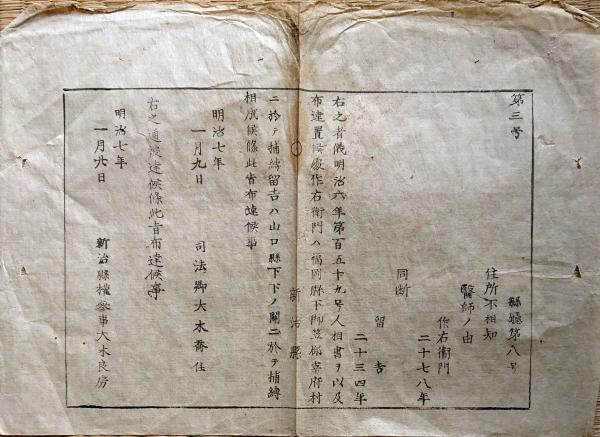 第三号
縣廳第八号
住所不相知
醫師ノ由
作右衞門
二十七八年
同断
留吉
二十三四年
右之者儀明治六年第百五十九号人相書ヲ以及
布達置候處作右衛門ハ福岡縣下御笠郡宰府村
新治縣
ニ於テ捕縛留吉ハ山口縣下下ノ關ニ於テ捕縛
相成候條此旨布達候事
明治七年
一月九日
司法卿大木喬任
右之通候達候條此旨布達候事
明治七年
一月廿日
新治縣權參事大木良房